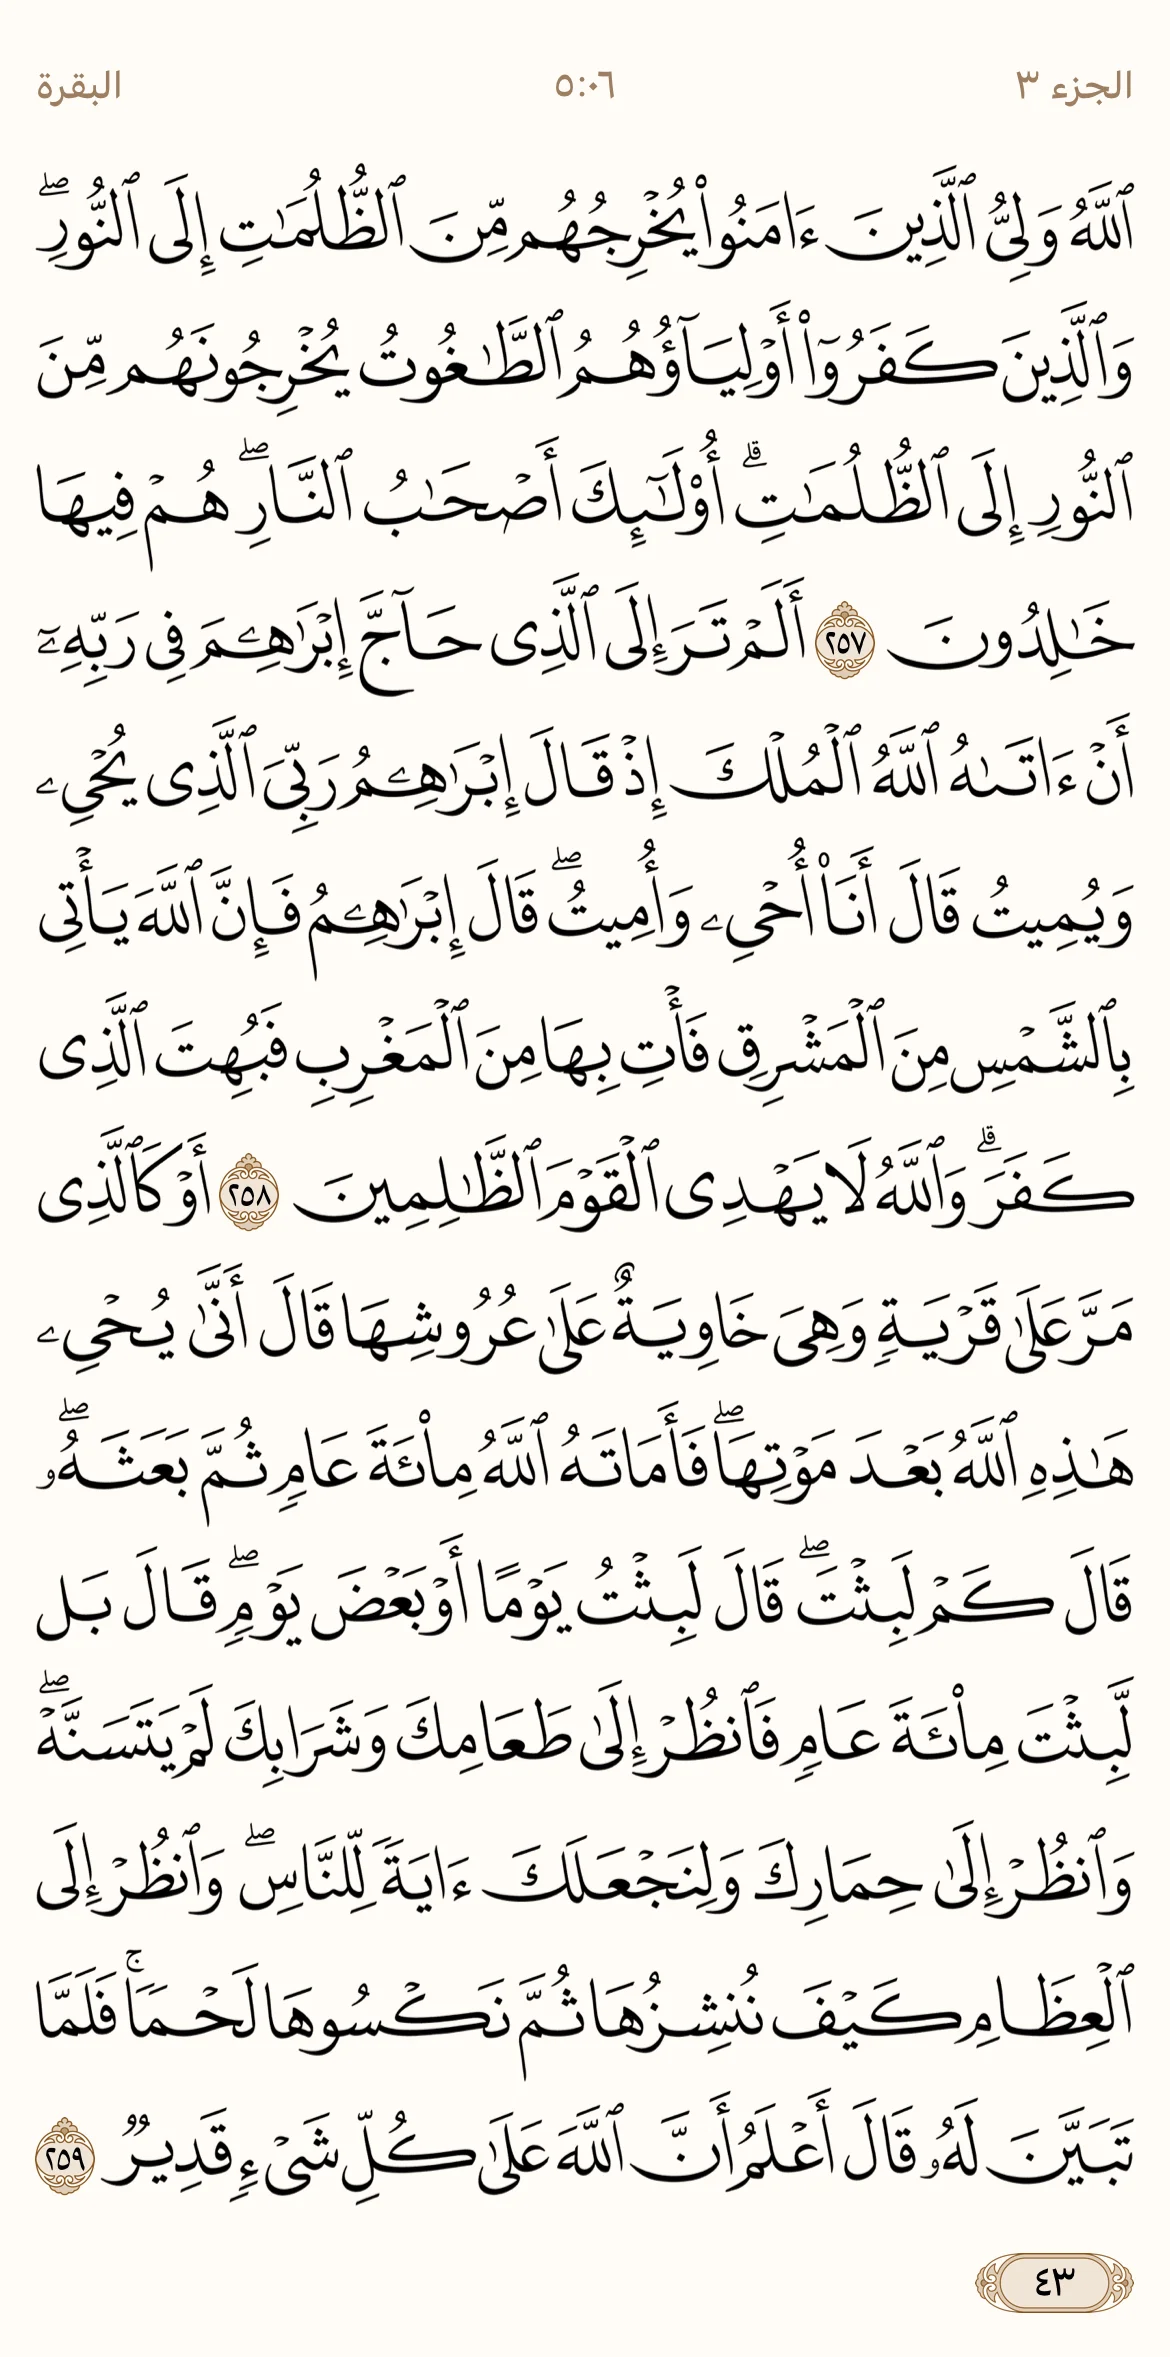 الجزء ٣
٥:٠٦
البقرة
ٱللَّهُ وَلِىُّ ٱلَّذِينَ ءَامَنُوا۟ يُخْرِجُهُم مِّنَ ٱلظُّلُمَـٰتِ إِلَى ٱلنُّورِ ۖ
وَٱلَّذِينَ كَفَرُوٓا۟ أَوْلِيَآؤُهُمُ ٱلطَّـٰغُوتُ يُخْرِجُونَهُم مِّنَ
ٱلنُّورِ إِلَى ٱلظُّلُمَـٰتِ ۗ أُو۟لَـٰٓئِكَ أَصْحَـٰبُ ٱلنَّارِ ۖ هُمْ فِيهَا
خَـٰلِدُونَ ٢٥٧ أَلَمْ تَرَ إِلَى ٱلَّذِى حَآجَّ إِبْرَٰهِـۧمَ فِى رَبِّهِۦٓ
أَنْ ءَاتَىٰهُ ٱللَّهُ ٱلْمُلْكَ إِذْ قَالَ إِبْرَٰهِـۧمُ رَبِّىَ ٱلَّذِى يُحْىِۦ
وَيُمِيتُ قَالَ أَنَا۠ أُحْىِۦ وَأُمِيتُ ۖ قَالَ إِبْرَٰهِـۧمُ فَإِنَّ ٱللَّهَ يَأْتِى
بِٱلشَّمْسِ مِنَ ٱلْمَشْرِقِ فَأْتِ بِهَا مِنَ ٱلْمَغْرِبِ فَبُهِتَ ٱلَّذِى
كَفَرَ ۗ وَٱللَّهُ لَا يَهْدِى ٱلْقَوْمَ ٱلظَّـٰلِمِينَ ٢٥٨ أَوْ كَٱلَّذِى
مَرَّ عَلَىٰ قَرْيَةٍ وَهِىَ خَاوِيَةٌ عَلَىٰ عُرُوشِهَا قَالَ أَنَّىٰ يُحْىِۦ
هَـٰذِهِ ٱللَّهُ بَعْدَ مَوْتِهَا ۖ فَأَمَاتَهُ ٱللَّهُ مِا۟ئَةَ عَامٍ ثُمَّ بَعَثَهُۥ ۖ
قَالَ كَمْ لَبِثْتَ ۖ قَالَ لَبِثْتُ يَوْمًا أَوْ بَعْضَ يَوْمٍ ۖ قَالَ بَل
لَّبِثْتَ مِا۟ئَةَ عَامٍ فَٱنظُرْ إِلَىٰ طَعَامِكَ وَشَرَابِكَ لَمْ يَتَسَنَّهْ ۖ
وَٱنظُرْ إِلَىٰ حِمَارِكَ وَلِنَجْعَلَكَ ءَايَةً لِّلنَّاسِ ۖ وَٱنظُرْ إِلَى
ٱلْعِظَامِ كَيْفَ نُنشِزُهَا ثُمَّ نَكْسُوهَا لَحْمًا ۚ فَلَمَّا
تَبَيَّنَ لَهُۥ قَالَ أَعْلَمُ أَنَّ ٱللَّهَ عَلَىٰ كُلِّ شَىْءٍ قَدِيرٌ ٢٥٩
٤٣